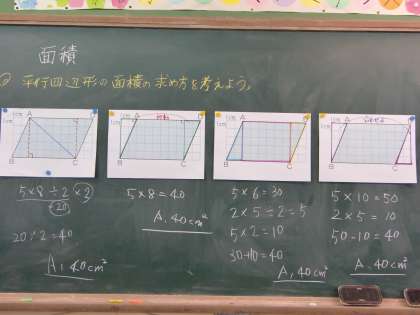 面積
平行四辺形の面積の求め方を考えよう。
1cm A
1cm
B C
5×8÷2×2
20
20×2=40
A. 40cm²
1cm A
1cm
B C
5×8=40
A. 40cm²
1cm A
1cm
B C
5×6=30
2×5÷2=5
5×2=10
30+10=40
A. 40cm²
1cm A
1cm
B C
5×10=50
2×5=10
50-10=40
A. 40cm²